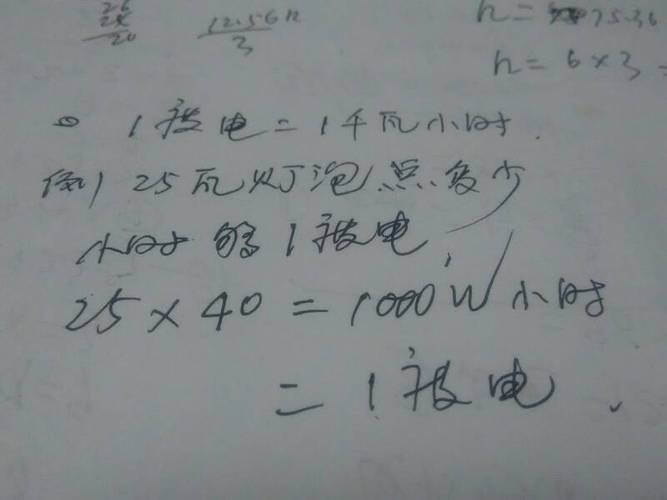 26
24
20
12.56h
3
h = 75.36
h = 6×3
1被电=1千瓦小时.
例) 25瓦灯泡点多少
小时够1被电
25×40=1000W小时
=1被电.